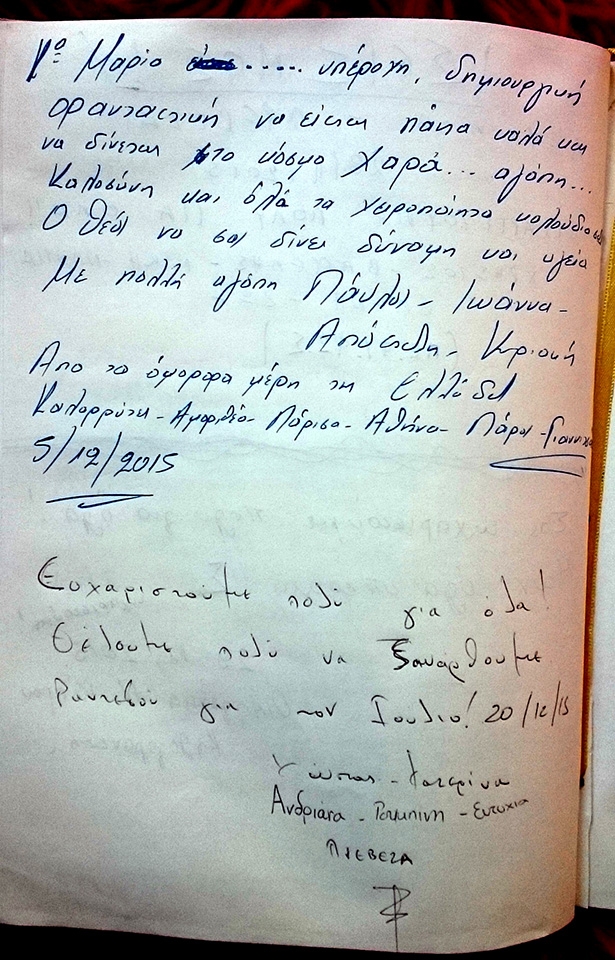 Κα Μαρία ..... υπέροχη, δημιουργική
φανταστική να είσται πάντα καλά και
να δίνεται στο κόσμο Χαρά... αγάπη...
Καλοσύνη και όλα τα χειροποίητα καλούδια
Ο Θεός να σας δίνει δύναμη και υγεία
Με πολλή αγάπη Παύλος - Ιωάννα -
Απόστολη - Κυριακή
Απο τα όμορφα μέρη της Ελλάδας
Καλαρρύτες - Αμφιθέα - Λάρισα - Αθήνα - Πάρος - Γιαννιτσά
5/12/2015
Ευχαριστούμε πολύ για όλα!
Θέλουμε πολύ να ξαναρθουμε
Ραντεβού για τον Ιούλιο! 20/12/15
Κώστας - Κατερίνα
Ανδριάνα - - Ευτυχία
ΠΡΕΒΕΖΑ